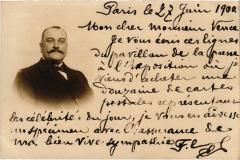 Paris le 27 Juin 1900
Mon cher Monsieur
Je vous écris ces lignes
du pavillon de la Presse
à l'Exposition où je
viens d'acheter une
douzaine de cartes
postales représentant
les célébrités du jour, je vous en adresse
un spécimen avec l'assurance de
ma bien vive sympathie